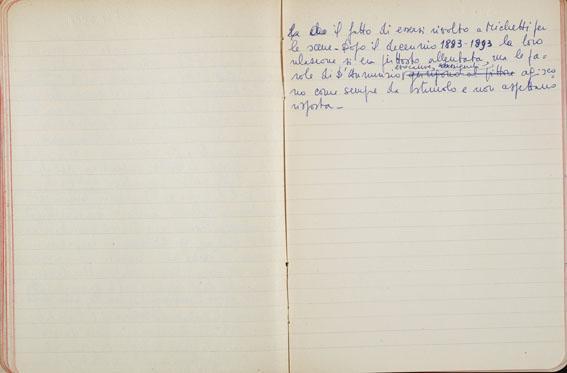 Da che il fatto di essersi rivolto a Michetti per
le scene. Dopo il decennio 1883-1893 la loro
relazione si era piuttosto allentata, ma le pa=
role di D'Annunzio al pittore agisco
no come sempre da stimolo e non aspettano
risposta.